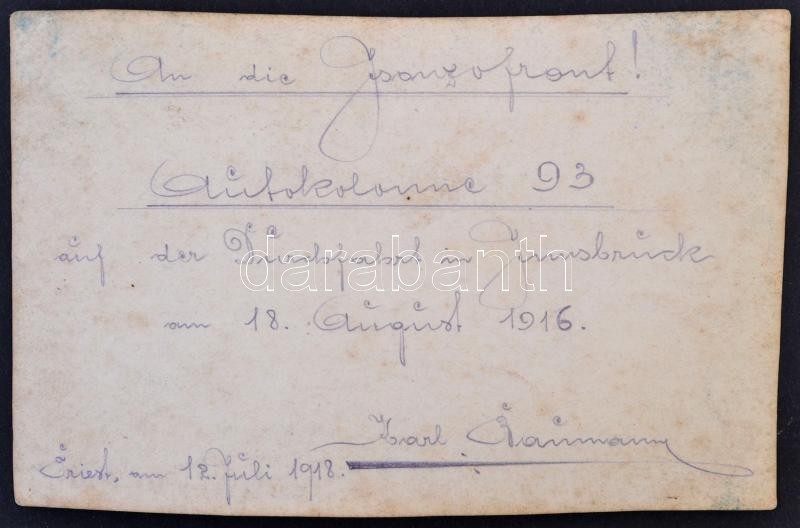 An die Isonzofront!
Autokolonne 93
auf der Durchfahrt in Innsbruck
am 18. August 1916.
Karl
Triest, am 12. Juli 1918.
darabanth
www.darabanth.com